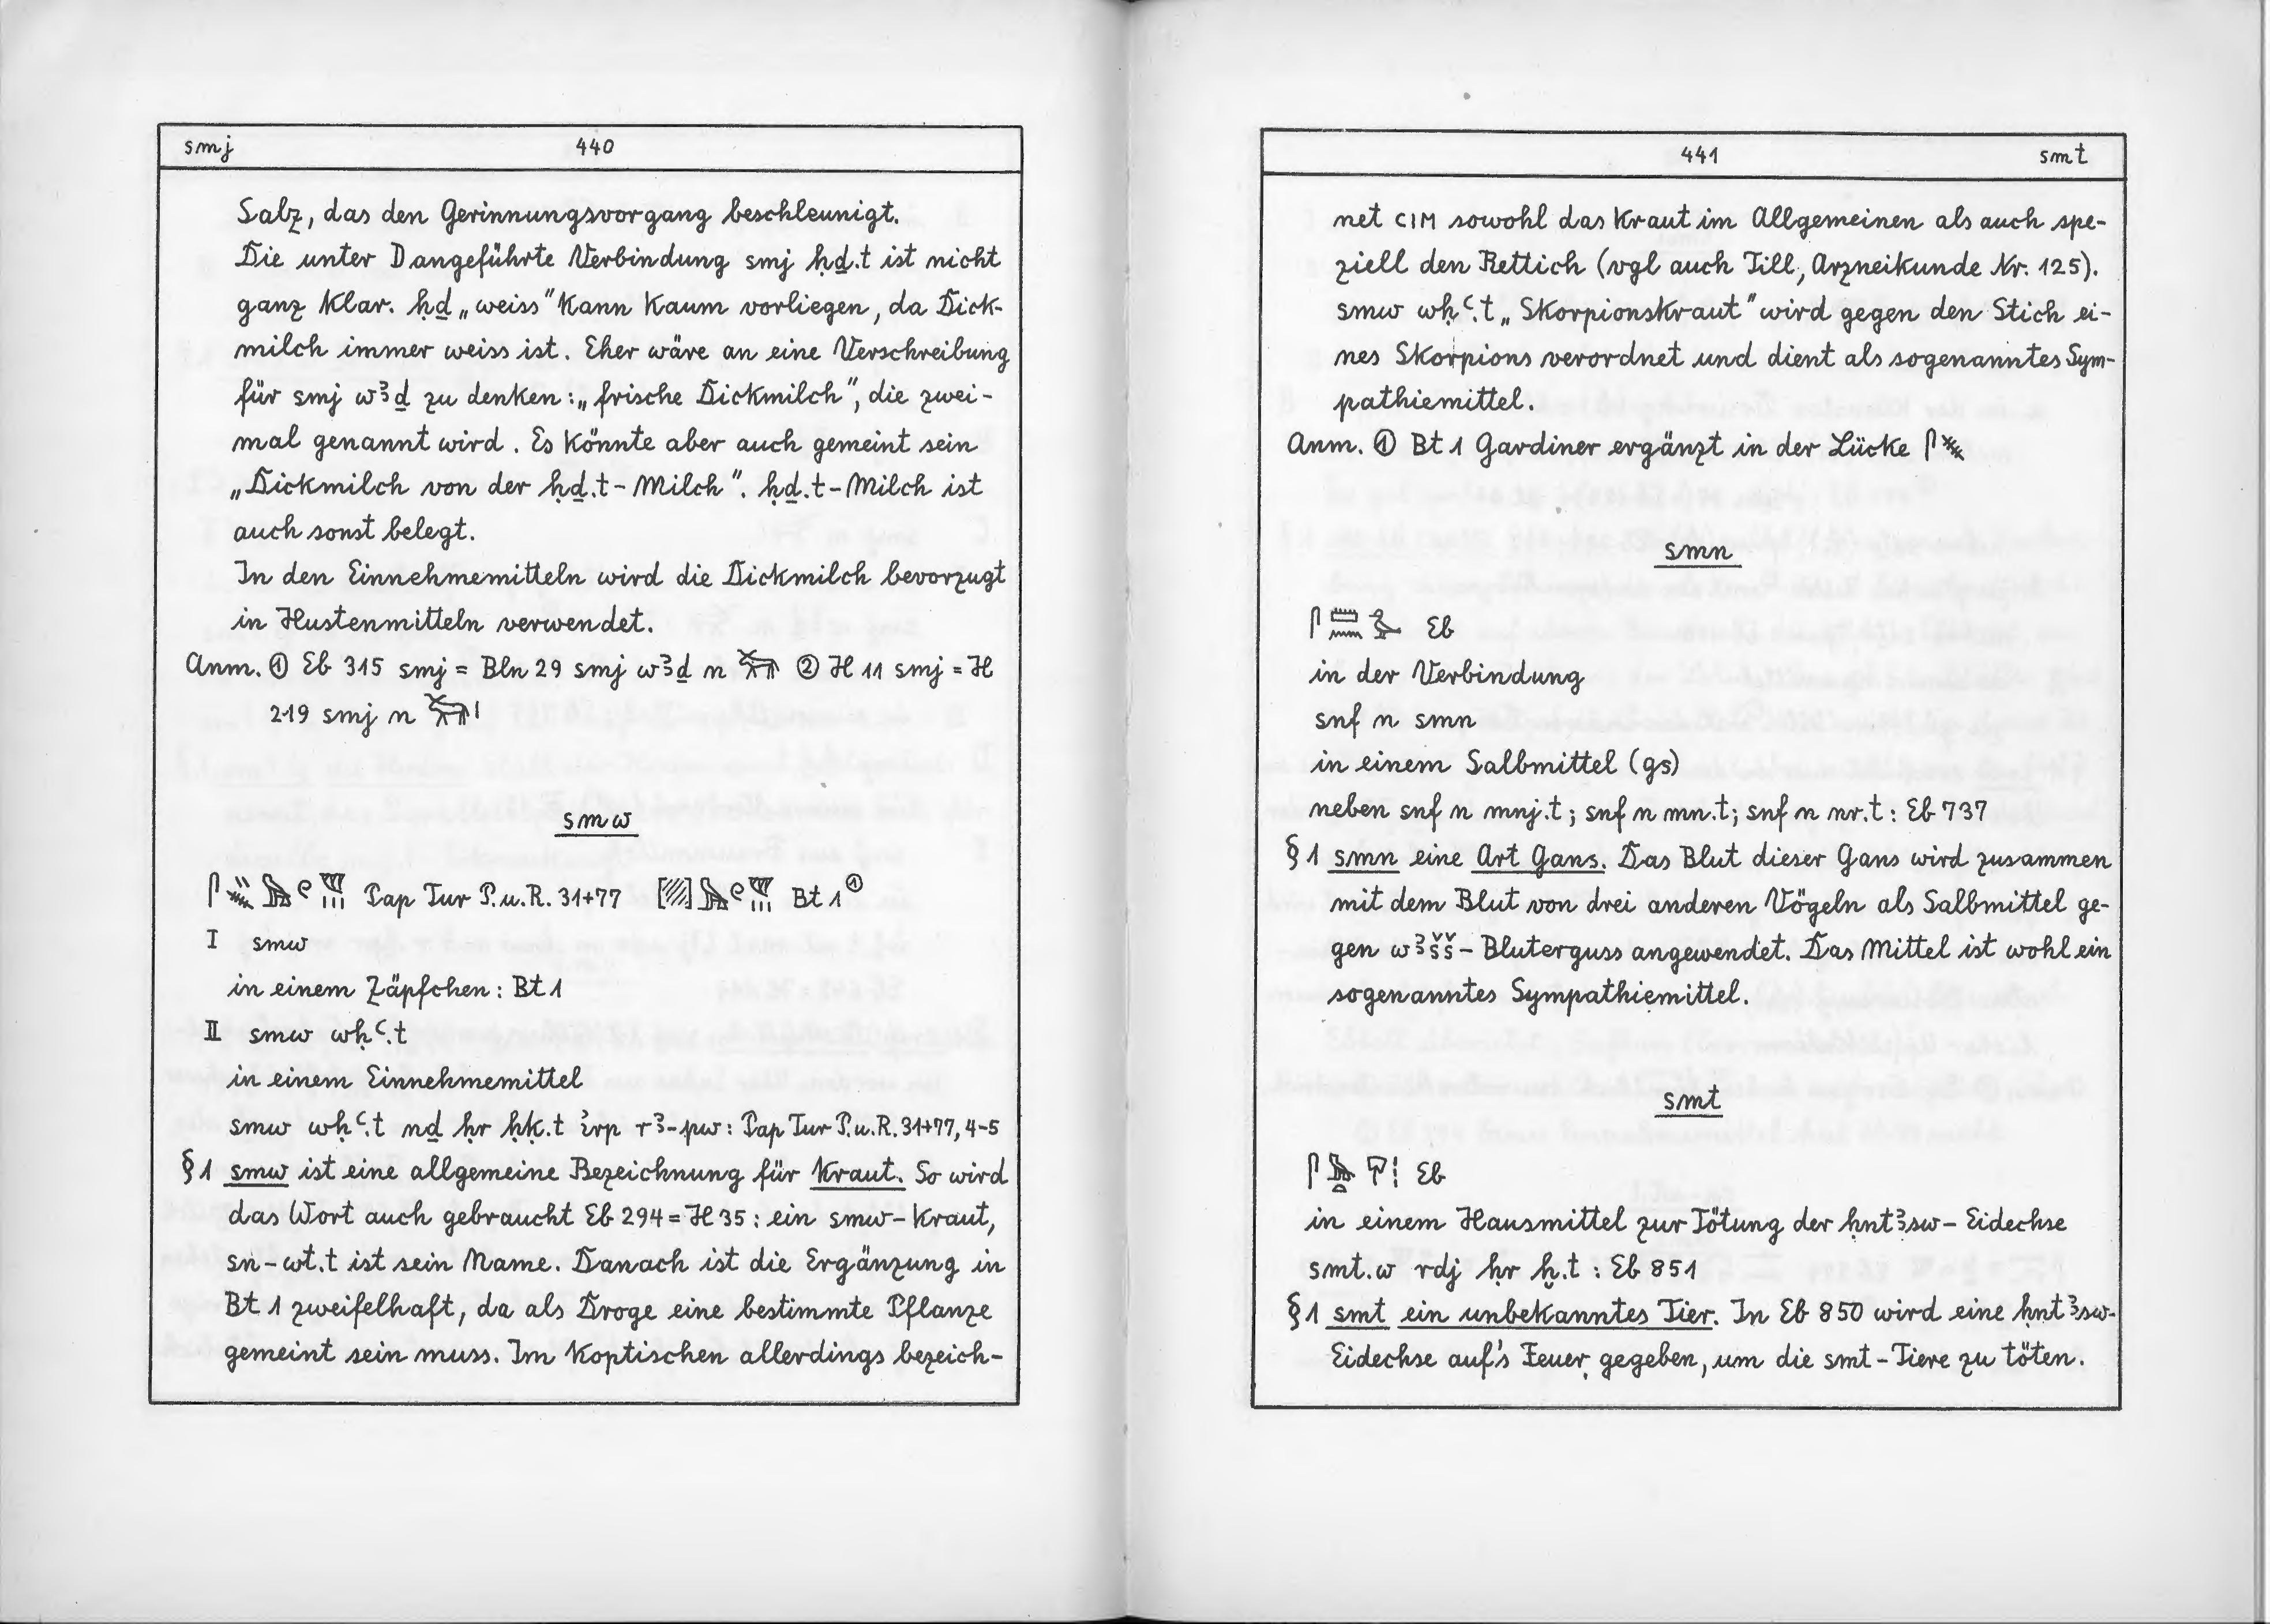 smj 440
Salz, das den Gerinnungsvorgang beschleunigt.
Die unter D angeführte Verbindung smj ḥḏ.t ist nicht
ganz klar. ḥḏ „weiss" kann kaum vorliegen, da Dick-
milch immer weiss ist. Eher wäre an eine Verschreibung
für smj wꜣḏ zu denken: „frische Dickmilch", die zwei-
mal genannt wird. Es könnte aber auch gemeint sein
„Dickmilch von der ḥḏ.t-Milch". ḥḏ.t-Milch ist
auch sonst belegt.
In den Einnehmemitteln wird die Dickmilch bevorzugt
in Hustenmitteln verwendet.
Anm. ① Eb 315 smj = Bln 29 smj wꜣḏ n ② H 11 smj = H
219 smj n
smw
Pap Tur P.u.R. 31+77 Bt 1 ①
I smw
in einem Zäpfchen: Bt 1
II smw wḥꜥ.t
in einem Einnehmemittel
smw wḥꜥ.t nḏ ḥr ḥḳ.t ı͗rp rꜣ-pw: Pap Tur P.u.R. 31+77, 4-5
§ 1 smw ist eine allgemeine Bezeichnung für Kraut. So wird
das Wort auch gebraucht Eb 294 = H 35: ein smw-Kraut,
sn-wt.t ist sein Name. Danach ist die Ergänzung in
Bt 1 zweifelhaft, da als Droge eine bestimmte Pflanze
gemeint sein muss. Im Koptischen allerdings bezeich-
441 smt
net CIM sowohl das Kraut im Allgemeinen als auch spe-
ziell den Rettich (vgl auch Till, Arzneikunde Nr. 125).
smw wḥꜥ.t „Skorpionskraut" wird gegen den Stich ei-
nes Skorpions verordnet und dient als sogenanntes Sym-
pathiemittel.
Anm. ① Bt 1 Gardiner ergänzt in der Lücke
smn
𓋴𓏠𓈖𓅬 Eb
in der Verbindung
snf n smn
in einem Salbmittel (gs)
neben snf n mnj.t; snf n mn.t; snf n nr.t: Eb 737
§ 1 smn eine Art Gans. Das Blut dieser Gans wird zusammen
mit dem Blut von drei anderen Vögeln als Salbmittel ge-
gen wꜣšš-Bluterguss angewendet. Das Mittel ist wohl ein
sogenanntes Sympathiemittel.
smt
Eb
in einem Hausmittel zur Tötung der ḥntꜣsw-Eidechse
smt.w rdj ḥr ḫ.t: Eb 851
§ 1 smt ein unbekanntes Tier. In Eb 850 wird eine ḥntꜣsw-
Eidechse auf's Feuer gegeben, um die smt-Tiere zu töten.